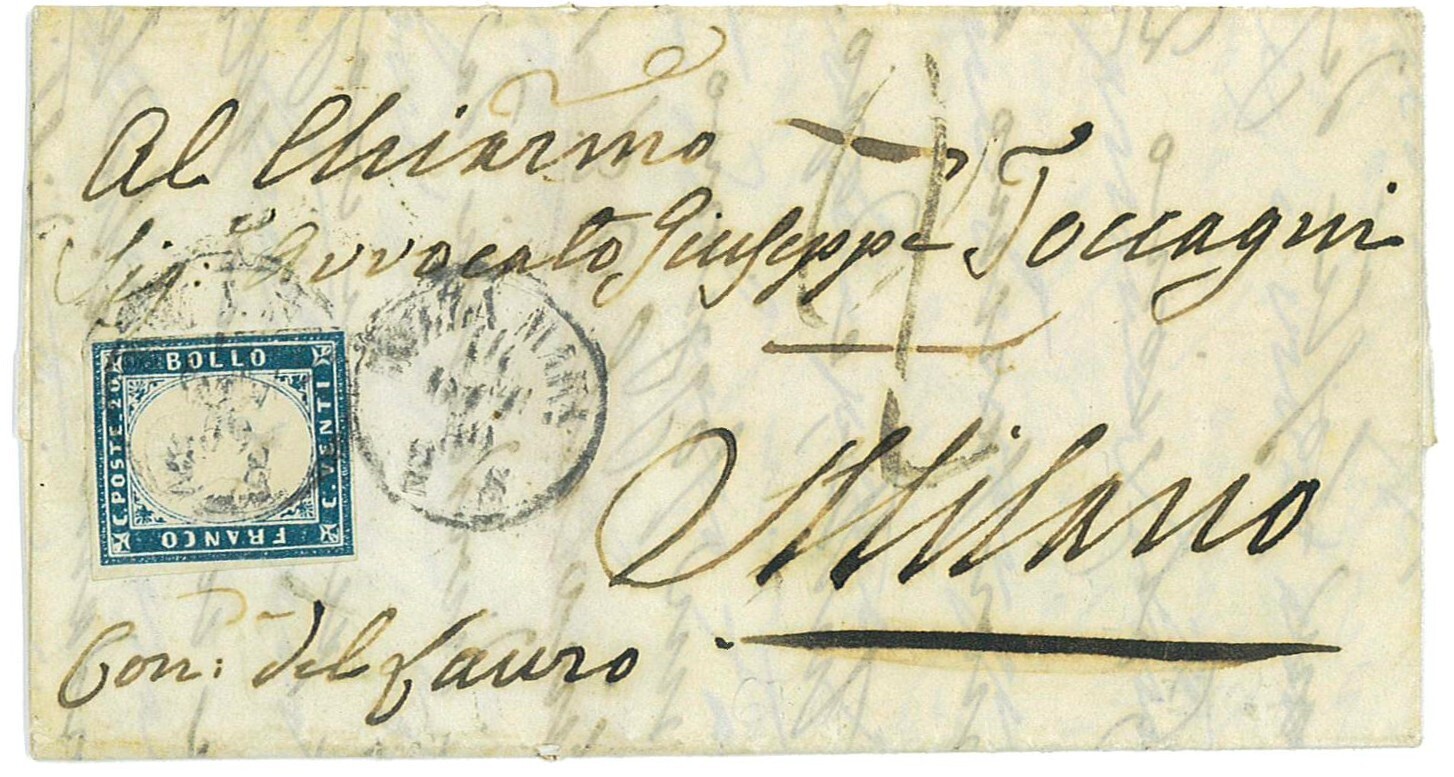 Al Chiarmo
Sig. Avvocato Giuseppe Toccagni
Milano
Con: del Lauro
BOLLO
C. POSTE 20
C. VENTI
FRANCO